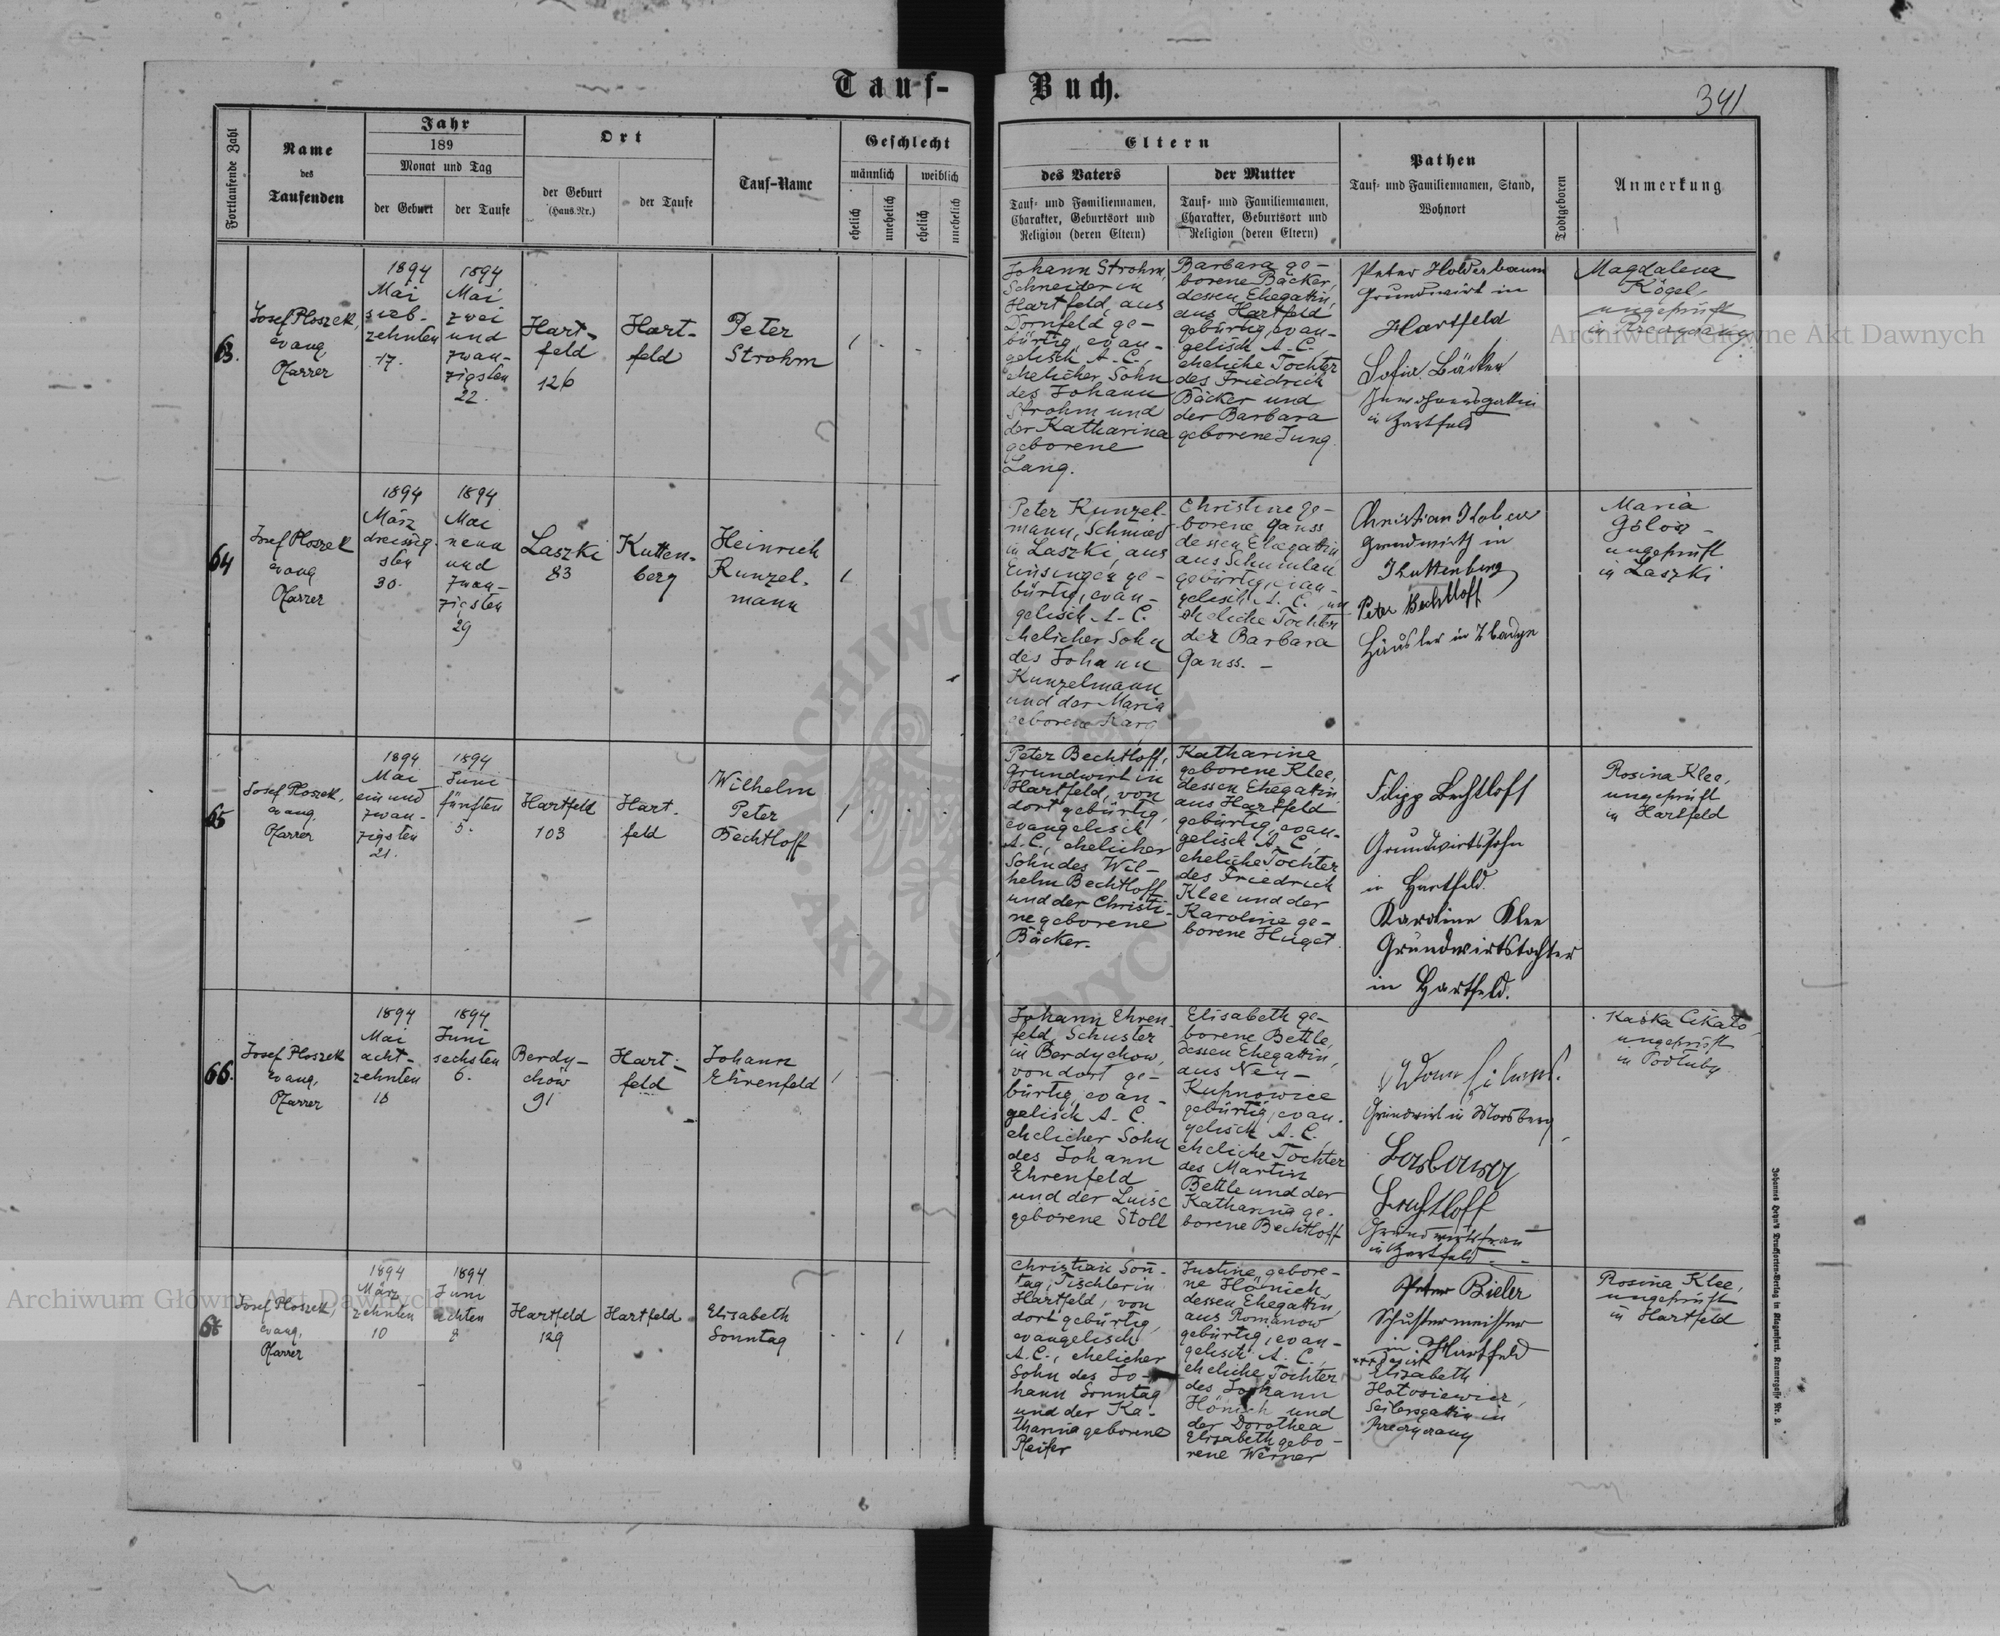 Tauf-
Buch.
341
Fortlaufende Zahl
Name
des
Taufenden
Jahr
189
Monat und Tag
der Geburt
der Taufe
Ort
der Geburt
(Haus-Nr.)
der Taufe
Tauf-Name
Geschlecht
männlich
weiblich
ehelich
unehelich
ehelich
unehelich
Eltern
des Vaters
Tauf- und Familiennamen,
Charakter, Geburtsort und
Religion (deren Eltern)
der Mutter
Tauf- und Familiennamen,
Charakter, Geburtsort und
Religion (deren Eltern)
Pathen
Tauf- und Familiennamen, Stand,
Wohnort
Todtgeboren
Anmerkung
63.
Josef Ploszek,
evang
Pfarrer
1894
Mai
sieb-
zehnten
17.
1894
Mai
zwei
und
zwan-
zigsten
22.
Hart-
feld
126
Hart-
feld
Peter
Strohm
1
Johann Strohm,
Schneider in
Hartfeld, aus
Dornfeld ge-
bürtig, evan-
gelisch A. C.,
ehelicher Sohn
des Johann
Strohm und
der Katharina
geborene
Lang.
Barbara ge-
borene Bäcker,
dessen Ehegattin,
aus Hartfeld
gebürtig, evan-
gelisch A. C.
eheliche Tochter
des Friedrich
Bäcker und
der Barbara
geborene Jung
Peter Holderbaum
Grundwirt in
Hartfeld
Sofia Bäcker
Inwohnersgattin
in Hartfeld
Magdalena
Kögel,
ungeprüft
in
64
Josef Ploszek
evang
Pfarrer
1894
März
dreissig-
sten
30.
1894
Mai
neun
und
zwan-
zigsten
29
Laszki
83
Kutten-
berg
Heinrich
Kunzel-
mann
1
Peter Kunzel-
mann, Schmied
in Laszki, aus
Einsingen ge-
bürtig, evan-
gelisch A. C.
ehelicher Sohn
des Johann
Kunzelmann
und der Maria
geborene Karg
Christine ge-
borene Ganss
dessen Ehegattin
aus Schumlau
gebürtig, evan-
gelisch A. C., un
eheliche Tochter
der Barbara
Ganss. -
Christian
Grundwirth in
Kuttenberg
Peter Bechtloff
Häusler in
Maria
ungeprüft
in Laszki
65
Josef Ploszek,
evang.
Pfarrer
1894
Mai
ein und
zwan-
zigsten
21.
1894
Juni
fünften
5.
Hartfeld
103
Hart-
feld
Wilhelm
Peter
Bechtloff
1
Peter Bechtloff,
Grundwirt in
Hartfeld, von
dort gebürtig,
evangelisch
A. C., ehelicher
Sohn des Wil-
helm Bechtloff
und der Christi-
ne geborene
Bäcker.
Katharina
geborene Klee,
dessen Ehegattin,
aus Hartfeld
gebürtig, evan-
gelisch A. C.,
eheliche Tochter
des Friedrich
Klee und der
Karoline ge-
borene Huget
Filipp Bechtloff
Grundwirtssohn
in Hartfeld.
Karoline Klee
Grundwirtstochter
in Hartfeld.
Rosina Klee,
ungeprüft
in Hartfeld
66.
Josef Ploszek
evang,
Pfarrer
1894
Mai
acht-
zehnten
18
1894
Juni
sechsten
6.
Berdy-
chów
91
Hart-
feld
Johann
Ehrenfeld
1
Johann Ehren-
feld, Schuster
in Berdychow,
von dort ge-
bürtig, evan-
gelisch A. C.
ehelicher Sohn
des Johann
Ehrenfeld
und der Luise
geborene Stoll
Elisabeth ge-
borene Bettle,
dessen Ehegattin,
aus Neu-
Kupnowice
gebürtig, evan-
gelisch A. C.
eheliche Tochter
des Martin
Bettle und der
Katharina ge-
borene Bechtloff
Grundwirt in
Bechtloff
Grundwirtsfrau
in Hartfeld
Kaśka
ungeprüft
in Podłuby
Josef Ploszek,
evang,
Pfarrer
1894
März
zehnten
10
1894
Juni
achten
8
Hartfeld
129
Hartfeld
Elisabeth
Sonntag
1
Christian Son-
tag, Tischler in
Hartfeld, von
dort gebürtig,
evangelisch
A. C., ehelicher
Sohn des Jo-
hann Sonntag
und der Ka-
tharina geborene
Pfeifer
Justine gebore-
ne Hönich,
dessen Ehegattin,
aus Romanow
gebürtig, evan-
gelisch A. C.,
eheliche Tochter
des Johann
Hönich und
der Dorothea
Elisabeth gebo-
rene Werner
Peter Bieler
Schustermeister
in Hartfeld
Elisabeth
Seilersgattin in
Rosina Klee,
ungeprüft
in Hartfeld
Johannes Heyn's Drucksorten-Verlag in Klagenfurt, Kramergasse Nr. 2.
Archiwum Główne Akt Dawnych
Archiwum Główne Akt Dawnych
ARCHIWUM GŁÓWNE AKT DAWNYCH